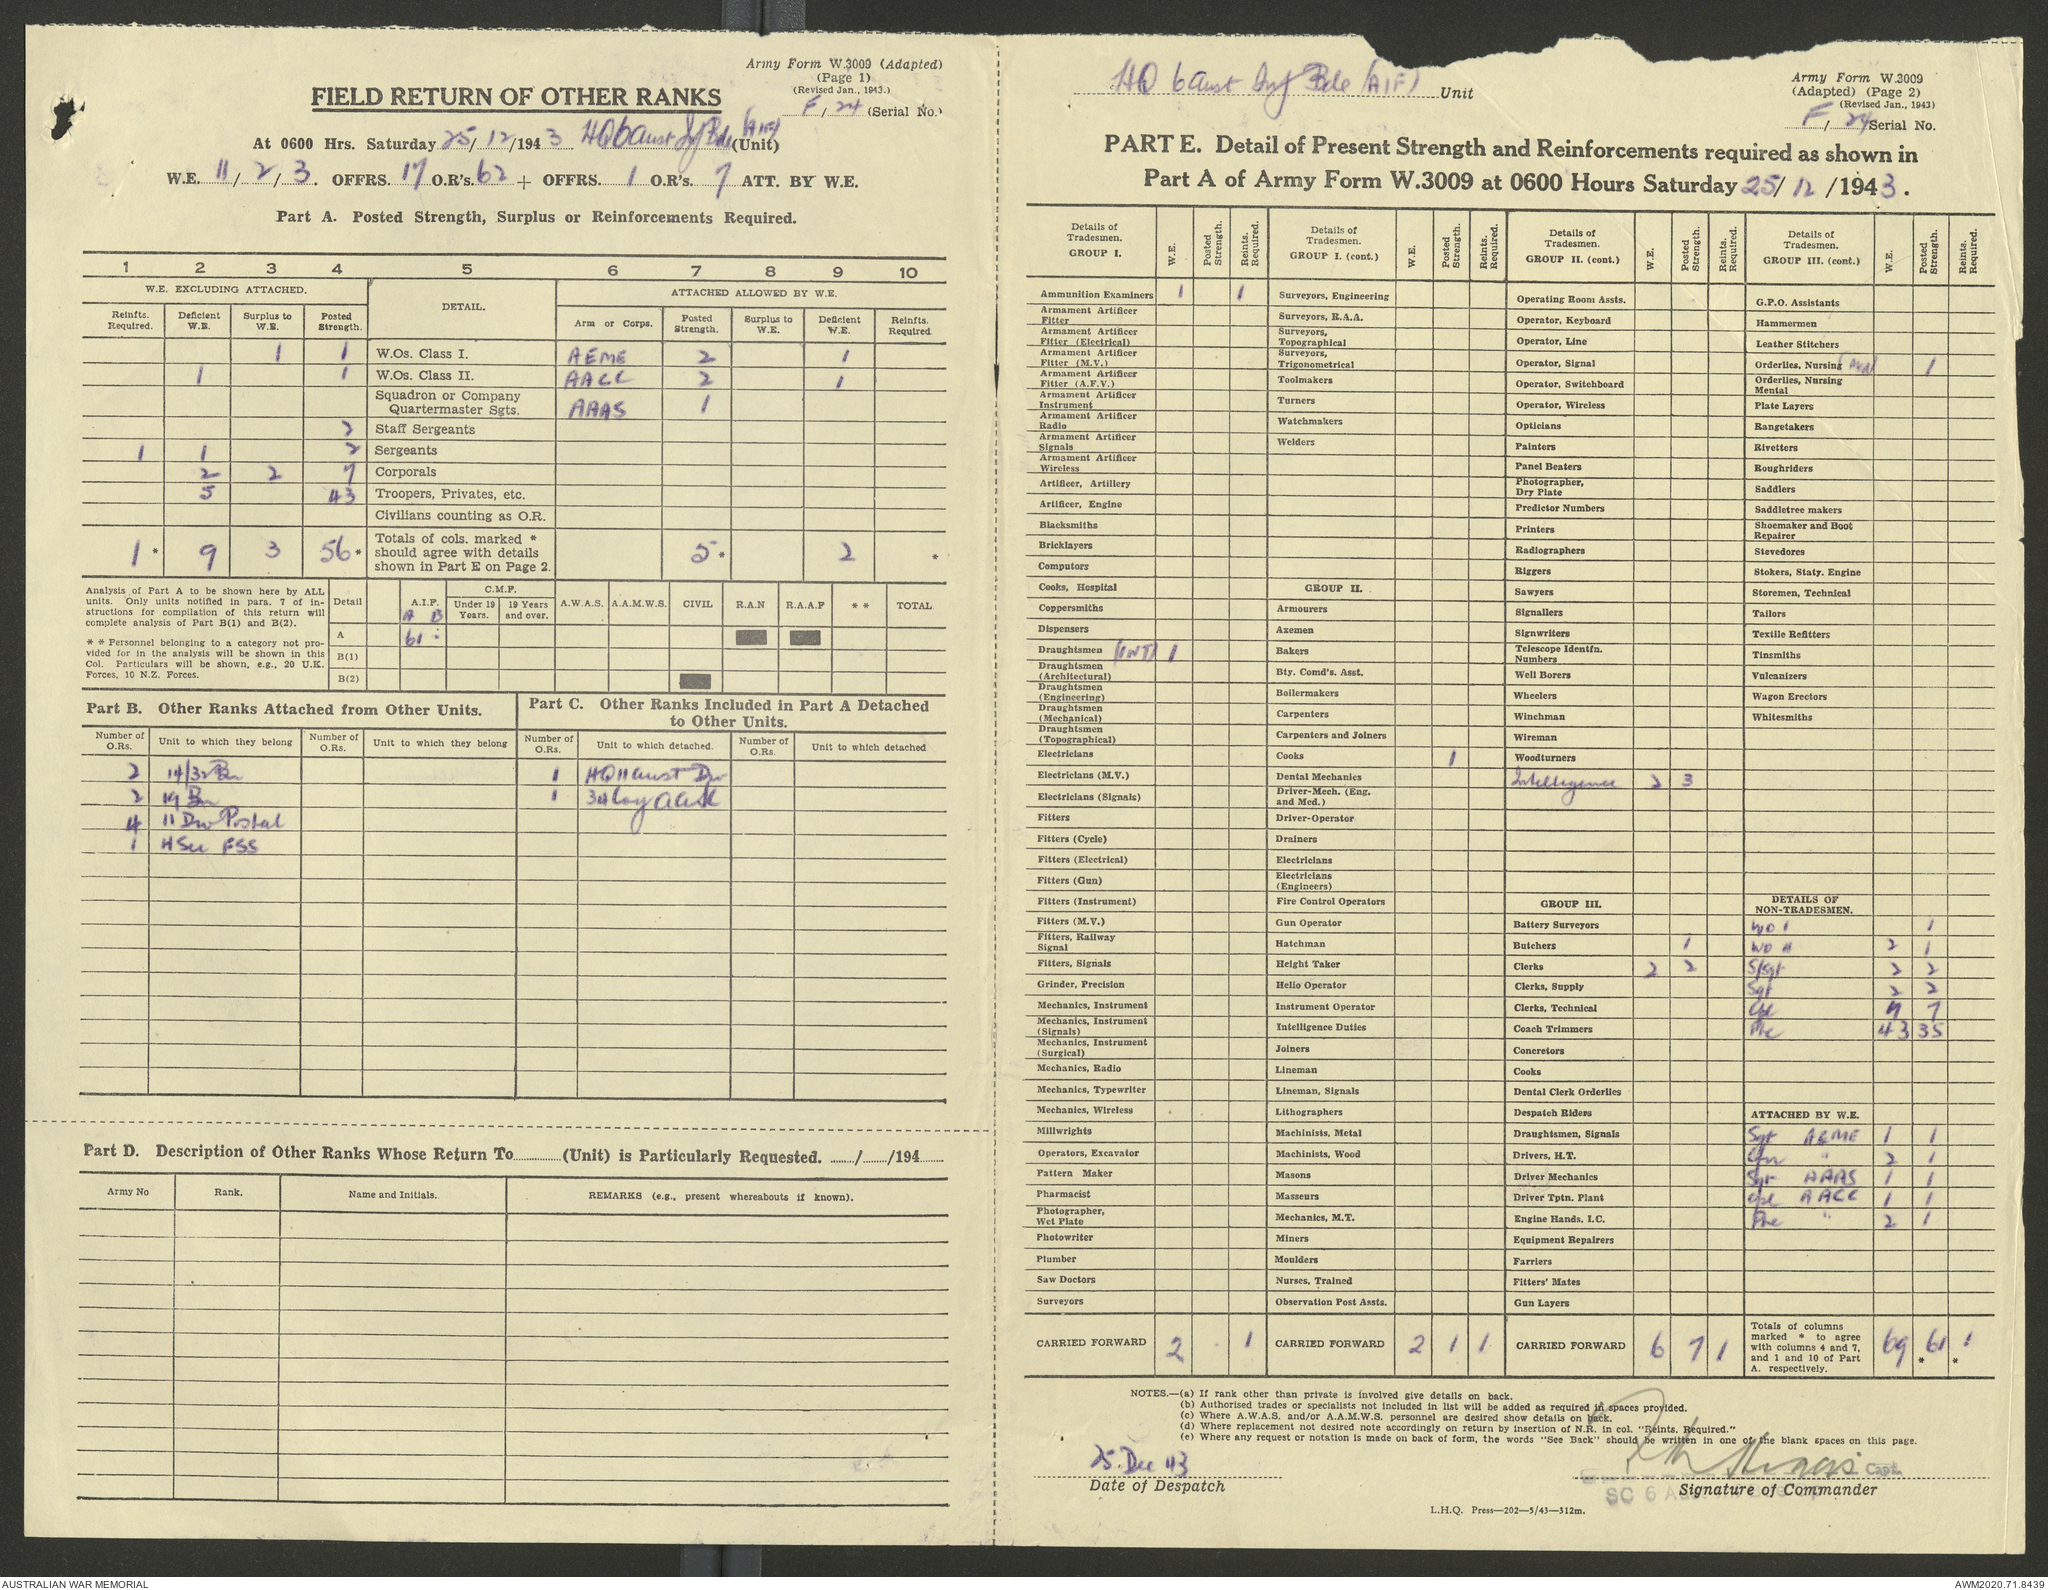 Army Form W.3009 (Adapted)
(Page 1)
(Revised Jan., 1943.)
FIELD RETURN OF OTHER RANKS
F / 24 (Serial No.)
At 0600 Hrs. Saturday 25/12/1943 HQ 6 Aust Inf Bde (AIF) (Unit)
W.E. 11/2/3. OFFRS. 17 O.R's. 62 + OFFRS. 1 O.R's. 7 ATT. BY W.E.
Part A. Posted Strength, Surplus or Reinforcements Required.
1 2 3 4 5 6 7 8 9 10
W.E. EXCLUDING ATTACHED. DETAIL. ATTACHED ALLOWED BY W.E.
Reinfts. Required. Deficient W.E. Surplus to W.E. Posted Strength. Arm or Corps. Posted Strength. Surplus to W.E. Deficient W.E. Reinfts. Required.
1 1 W.Os. Class I. AEME 2 1
1 1 W.Os. Class II. AACC 2 1
Squadron or Company Quartermaster Sgts. AAAS 1
2 Staff Sergeants
1 1 2 Sergeants
2 2 7 Corporals
5 43 Troopers, Privates, etc.
Civilians counting as O.R.
1 * 9 3 56 * Totals of cols. marked * should agree with details shown in Part E on Page 2. 5 * 2 *
Analysis of Part A to be shown here by ALL units. Only units notified in para. 7 of instructions for compilation of this return will complete analysis of Part B(1) and B(2).
* * Personnel belonging to a category not provided for in the analysis will be shown in this Col. Particulars will be shown, e.g., 20 U.K. Forces, 10 N.Z. Forces.
Detail A.I.F. C.M.F. Under 19 Years. 19 Years and over. A.W.A.S. A.A.M.W.S. CIVIL R.A.N R.A.A.F * * TOTAL
A B
A 61
B(1)
B(2)
Part B. Other Ranks Attached from Other Units.
Number of O.Rs. Unit to which they belong Number of O.Rs. Unit to which they belong
2 14/32 Bn
2 19 Bn
4 11 Div Postal
1 H Sec FSS
Part C. Other Ranks Included in Part A Detached to Other Units.
Number of O.Rs. Unit to which detached. Number of O.Rs. Unit to which detached
1 HQ 11 Aust Div
1
Part D. Description of Other Ranks Whose Return To ............ (Unit) is Particularly Requested. ....../....../194......
Army No Rank. Name and Initials. REMARKS (e.g., present whereabouts if known).
HQ 6 Aust Inf Bde (AIF) Unit
Army Form W.3009
(Adapted) (Page 2)
(Revised Jan., 1943)
F / 24 Serial No.
PART E. Detail of Present Strength and Reinforcements required as shown in
Part A of Army Form W.3009 at 0600 Hours Saturday 25/12/1943.
Details of Tradesmen. GROUP I. W.E. Posted Strength. Reints. Required.
Ammunition Examiners 1 1
Armament Artificer Fitter
Armament Artificer Fitter (Electrical)
Armament Artificer Fitter (M.V.)
Armament Artificer Fitter (A.F.V.)
Armament Artificer Instrument
Armament Artificer Radio
Armament Artificer Signals
Armament Artificer Wireless
Artificer, Artillery
Artificer, Engine
Blacksmiths
Bricklayers
Computors
Cooks, Hospital
Coppersmiths
Dispensers
Draughtsmen (INT) 1
Draughtsmen (Architectural)
Draughtsmen (Engineering)
Draughtsmen (Mechanical)
Draughtsmen (Topographical)
Electricians
Electricians (M.V.)
Electricians (Signals)
Fitters
Fitters (Cycle)
Fitters (Electrical)
Fitters (Gun)
Fitters (Instrument)
Fitters (M.V.)
Fitters, Railway Signal
Fitters, Signals
Grinder, Precision
Mechanics, Instrument
Mechanics, Instrument (Signals)
Mechanics, Instrument (Surgical)
Mechanics, Radio
Mechanics, Typewriter
Mechanics, Wireless
Millwrights
Operators, Excavator
Pattern Maker
Pharmacist
Photographer, Wet Plate
Photowriter
Plumber
Saw Doctors
Surveyors
CARRIED FORWARD 2 . 1
Details of Tradesmen. GROUP I. (cont.) W.E. Posted Strength. Reints. Required.
Surveyors, Engineering
Surveyors, R.A.A.
Surveyors, Topographical
Surveyors, Trigonometrical
Toolmakers
Turners
Watchmakers
Welders
GROUP II.
Armourers
Axemen
Bakers
Bty. Comd's. Asst.
Boilermakers
Carpenters
Carpenters and Joiners
Cooks 1
Dental Mechanics
Driver-Mech. (Eng. and Med.)
Driver-Operator
Drainers
Electricians
Electricians (Engineers)
Fire Control Operators
Gun Operator
Hatchman
Height Taker
Helio Operator
Instrument Operator
Intelligence Duties
Joiners
Lineman
Lineman, Signals
Lithographers
Machinists, Metal
Machinists, Wood
Masons
Masseurs
Mechanics, M.T.
Miners
Moulders
Nurses, Trained
Observation Post Assts.
CARRIED FORWARD 2 1 1
Details of Tradesmen. GROUP II. (cont.) W.E. Posted Strength. Reints. Required.
Operating Room Assts.
Operator, Keyboard
Operator, Line
Operator, Signal
Operator, Switchboard
Operator, Wireless
Opticians
Painters
Panel Beaters
Photographer, Dry Plate
Predictor Numbers
Printers
Radiographers
Riggers
Sawyers
Signallers
Signwriters
Telescope Identfn. Numbers
Well Borers
Wheelers
Winchman
Wireman
Woodturners
Intelligence 2 3
GROUP III.
Battery Surveyors
Butchers 1
Clerks 2 2
Clerks, Supply
Clerks, Technical
Coach Trimmers
Concretors
Cooks
Dental Clerk Orderlies
Despatch Riders
Draughtsmen, Signals
Drivers, H.T.
Driver Mechanics
Driver Tptn. Plant
Engine Hands, I.C.
Equipment Repairers
Farriers
Fitters' Mates
Gun Layers
CARRIED FORWARD 6 7 1
Details of Tradesmen. GROUP III. (cont.) W.E. Posted Strength. Reints. Required.
G.P.O. Assistants
Hammermen
Leather Stitchers
Orderlies, Nursing 1
Orderlies, Nursing Mental
Plate Layers
Rangetakers
Rivetters
Roughriders
Saddlers
Saddletree makers
Shoemaker and Boot Repairer
Stevedores
Stokers, Staty. Engine
Storemen, Technical
Tailors
Textile Refitters
Tinsmiths
Vulcanizers
Wagon Erectors
Whitesmiths
DETAILS OF NON-TRADESMEN.
WO I 1
WO II 2 1
S/Sgt 2 2
Sgt 2 2
Cpl 9 7
Pte 43 35
ATTACHED BY W.E.
Sgt AEME 1 1
Cfn " 2 1
Sgt AAAS 1 1
Cpl AACC 1 1
Pte " 2 1
Totals of columns marked * to agree with columns 4 and 7, and 1 and 10 of Part A. respectively. 69 61 * 1 *
NOTES.—(a) If rank other than private is involved give details on back.
(b) Authorised trades or specialists not included in list will be added as required in spaces provided.
(c) Where A.W.A.S. and/or A.A.M.W.S. personnel are desired show details on back.
(d) Where replacement not desired note accordingly on return by insertion of N.R. in col. "Reints. Required."
(e) Where any request or notation is made on back of form, the words "See Back" should be written in one of the blank spaces on this page.
25 Dec 43
Date of Despatch
Capt.
SC 6
Signature of Commander
L.H.Q. Press—202—5/43—312m.
AUSTRALIAN WAR MEMORIAL
AWM2020.71.8439